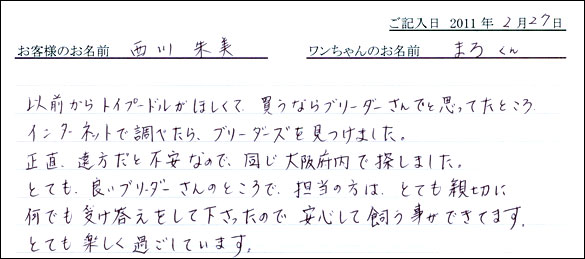 ご記入日 2011 年 2月27日
お客様のお名前 西川 朱美 ワンちゃんのお名前 まろ くん
以前からトイプードルがほしくて、買うならブリーダーさんでと思ってたところ
インターネットで調べたら、ブリーダーズを見つけました。
正直、遠方だと不安なので、同じ大阪府内で探しました。
とても、良いブリーダーさんのところで、担当の方は、とても親切に
何でも受け答えをして下さったので安心して飼う事ができてます。
とても楽しく過ごしています。